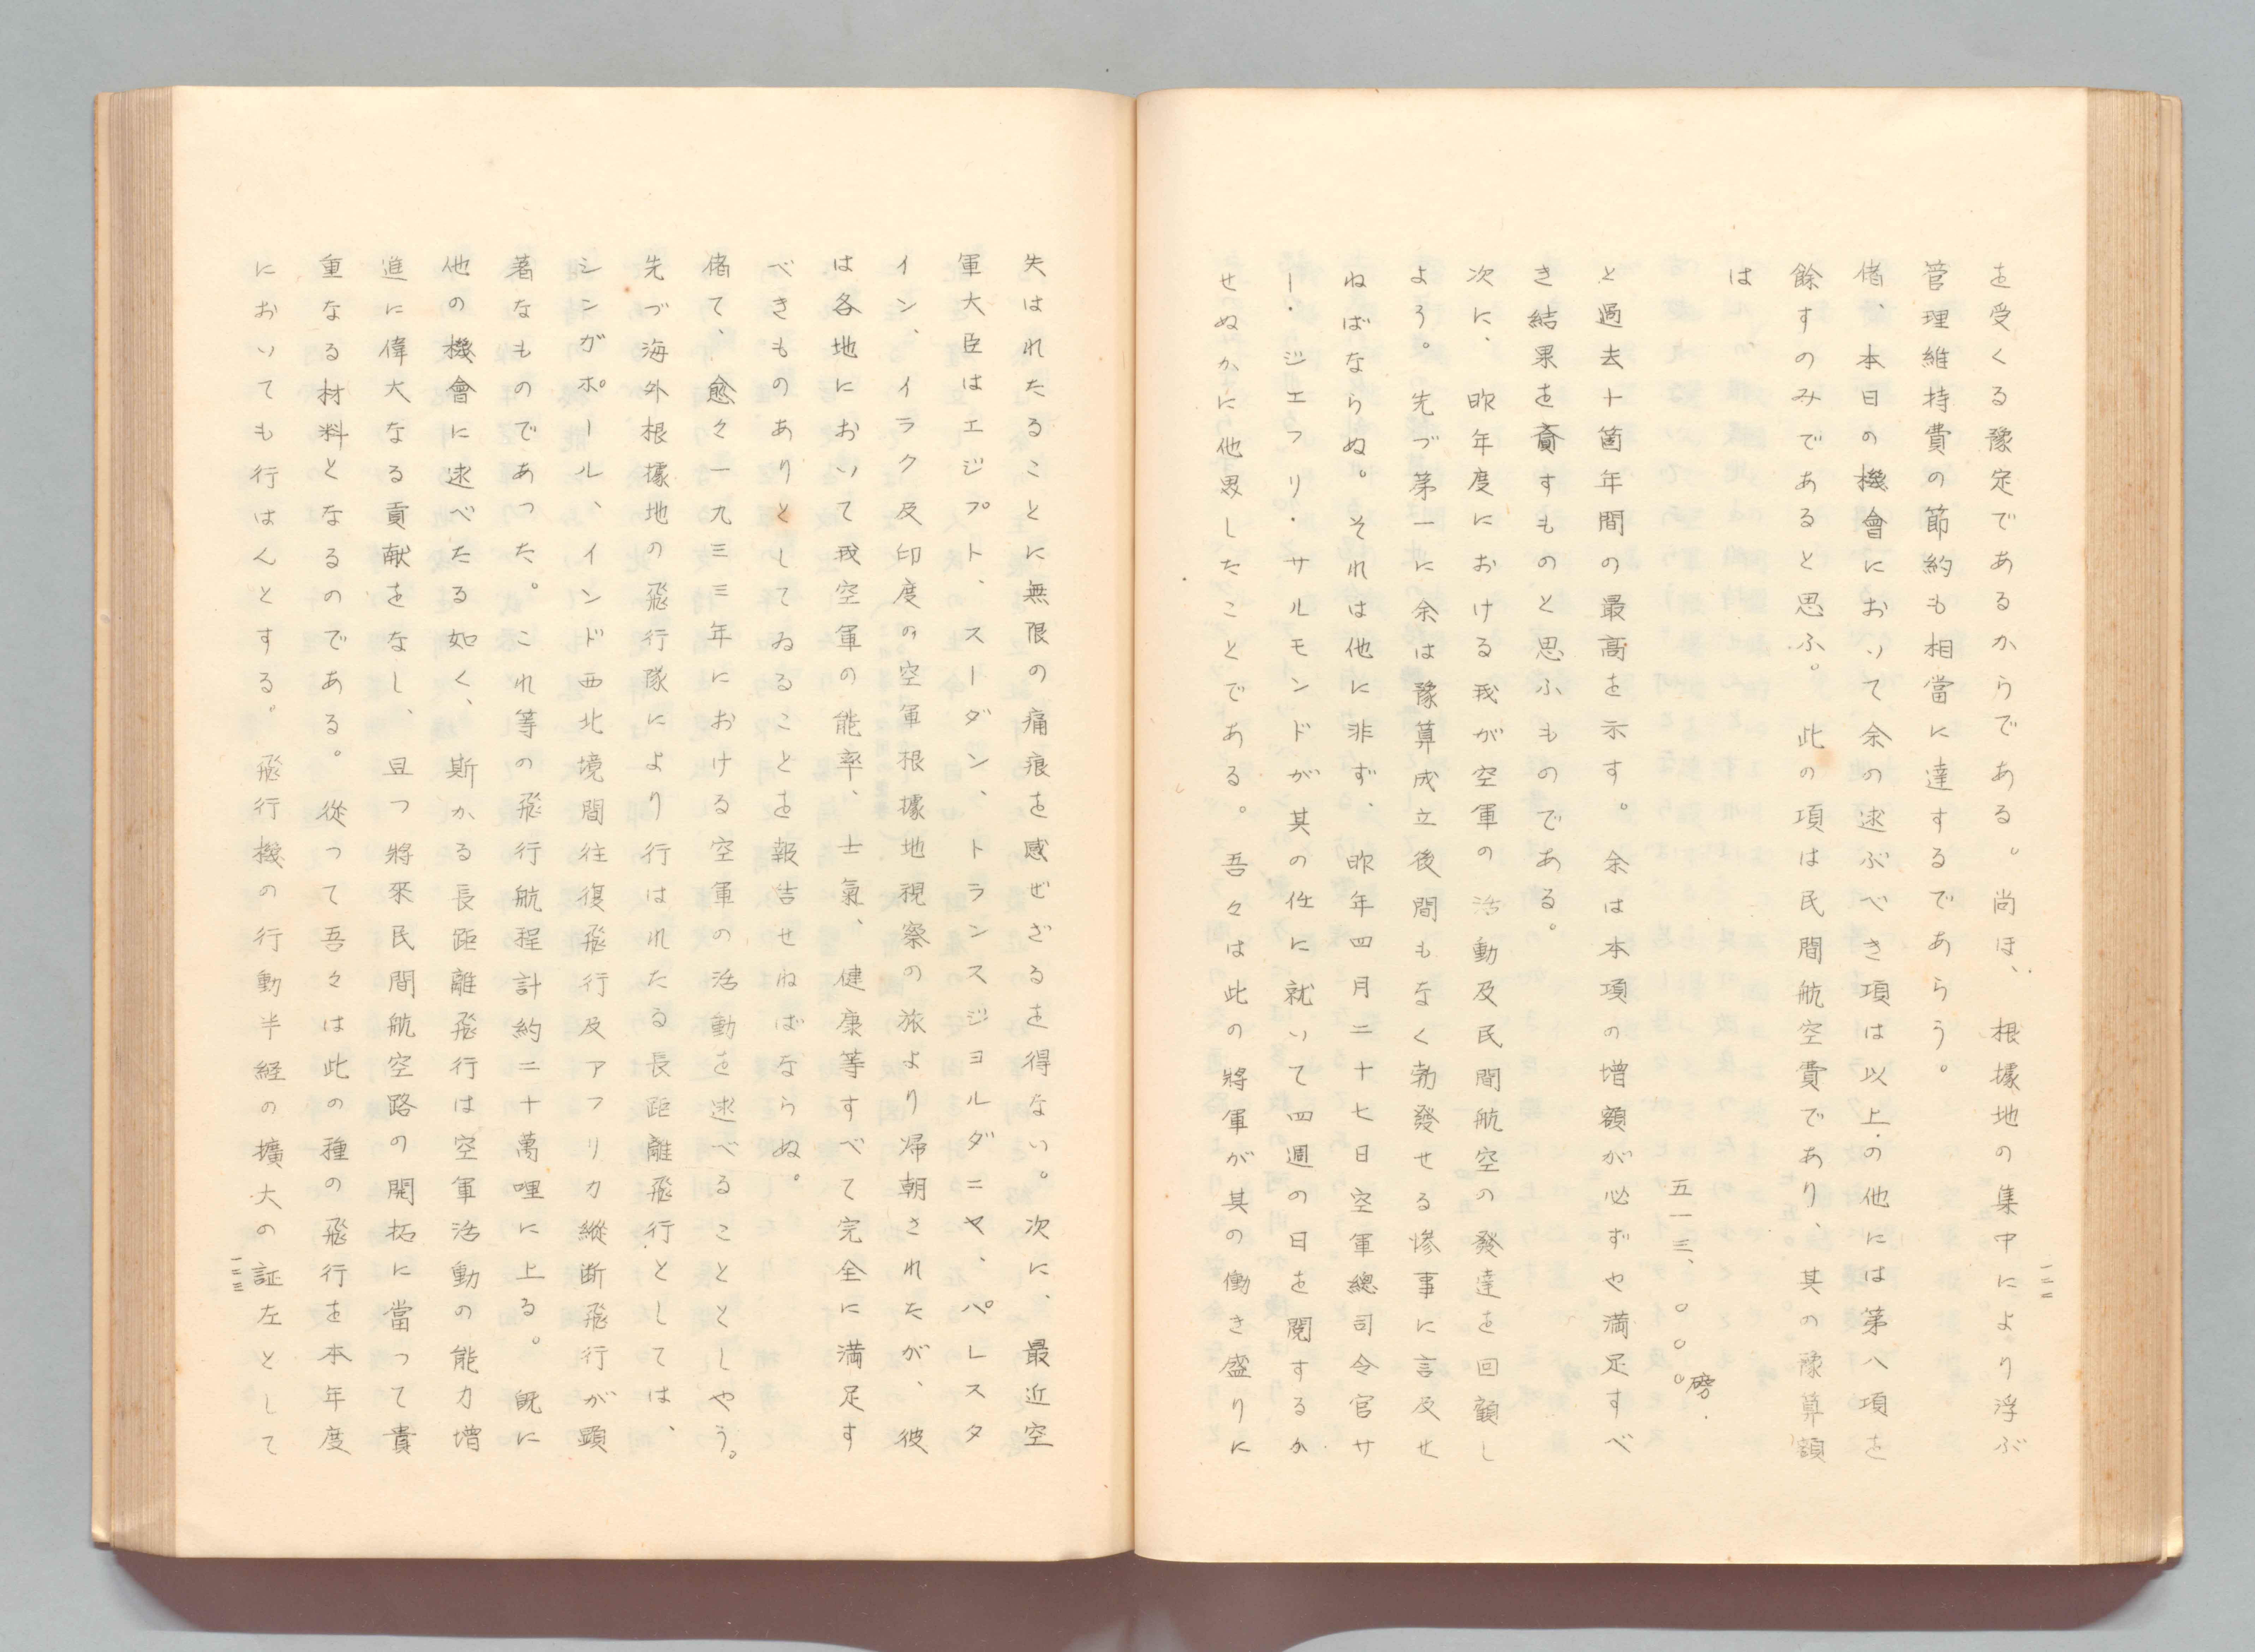 を受くる豫定であるからである。尚ほ、根據地の集中により浮ぶ
管理維持費の節約も相當に達するであらう。
偖、本日の機會において余の述ぶべき項は以上の他には第八項を
餘すのみであると思ふ。此の項は民間航空費であり、其の豫算額
は、
五一三、〇〇〇磅
と過去十箇年間の最高を示す。余は本項の増額が必ずや満足すべ
き結果を齎すものと思ふものである。
次に、昨年度における我が空軍の活動及民間航空の發達を回顧し
よう。先づ第一に余は豫算成立後間もなく勃發せる慘事に言及せ
ねばならぬ。それは他に非ず、昨年四月二十七日空軍總司令官サ
ー・ジエフリ・サルモンドが其の任に就いて四週の日を閲するか
せぬかに他界したことである。吾々は此の將軍が其の働き盛りに
一二二
失はれたることに無限の痛痕を感ぜざるを得ない。次に、最近空
軍大臣はエジプト、スーダン、トランスジヨルダニヤ、パレスタ
イン、イラク及印度の空軍根據地視察の旅より帰朝されたが、彼
は各地において我空軍の能率、士氣、健康等すべて完全に満足す
べきものありとしてゐることを報告せねばならぬ。
偖て、愈々一九三三年における空軍の活動を述べることとしやう。
先づ海外根據地の飛行隊により行はれたる長距離飛行としては、
シンガポール、インド西北境間往復飛行及アフリカ縱断飛行が顕
著なものであつた。これ等の飛行航程計約二十萬哩に上る。既に
他の機會に述べたる如く、斯かる長距離飛行は空軍活動の能力増
進に偉大なる貢献をなし、且つ將來民間航空路の開拓に當つて貴
重なる材料となるのである。從つて吾々は此の種の飛行を本年度
においても行はんとする。飛行機の行動半経の擴大の証左として
一二三